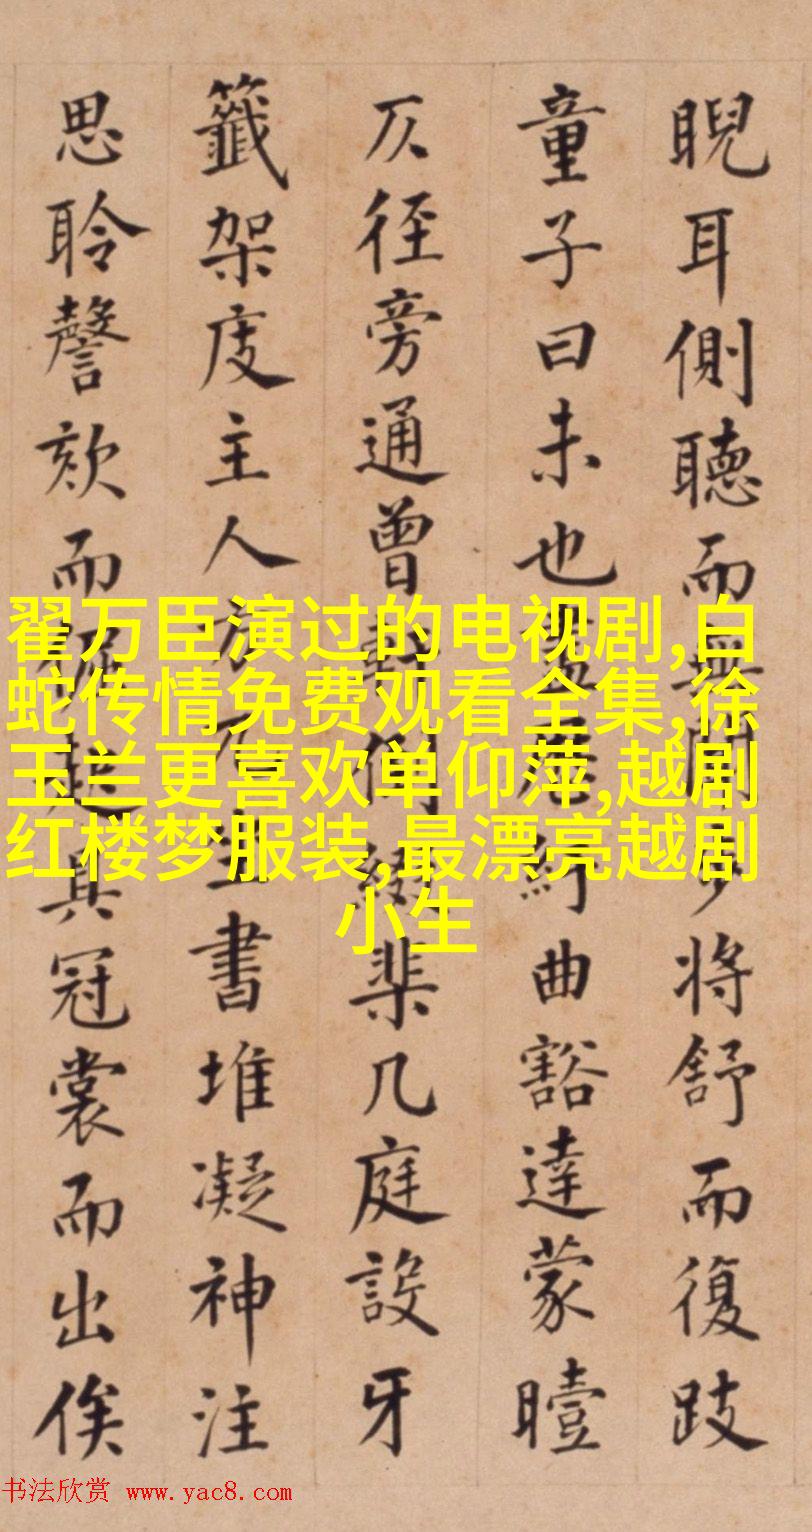 睨耳側聽而無將舒而復跂
童子曰未也巷紆曲豁達蒙曀
仄徑旁通曾棐几庭設牙
籤架庋主人於書堆凝神注
思聆謦欬而起具冠裳而出俟
翟万臣演过的电视剧,白
蛇传情免费观看全集,徐
玉兰更喜欢单仰萍,越剧
红楼梦服装,最漂亮越剧
小生
书法欣赏 www.yac8.com